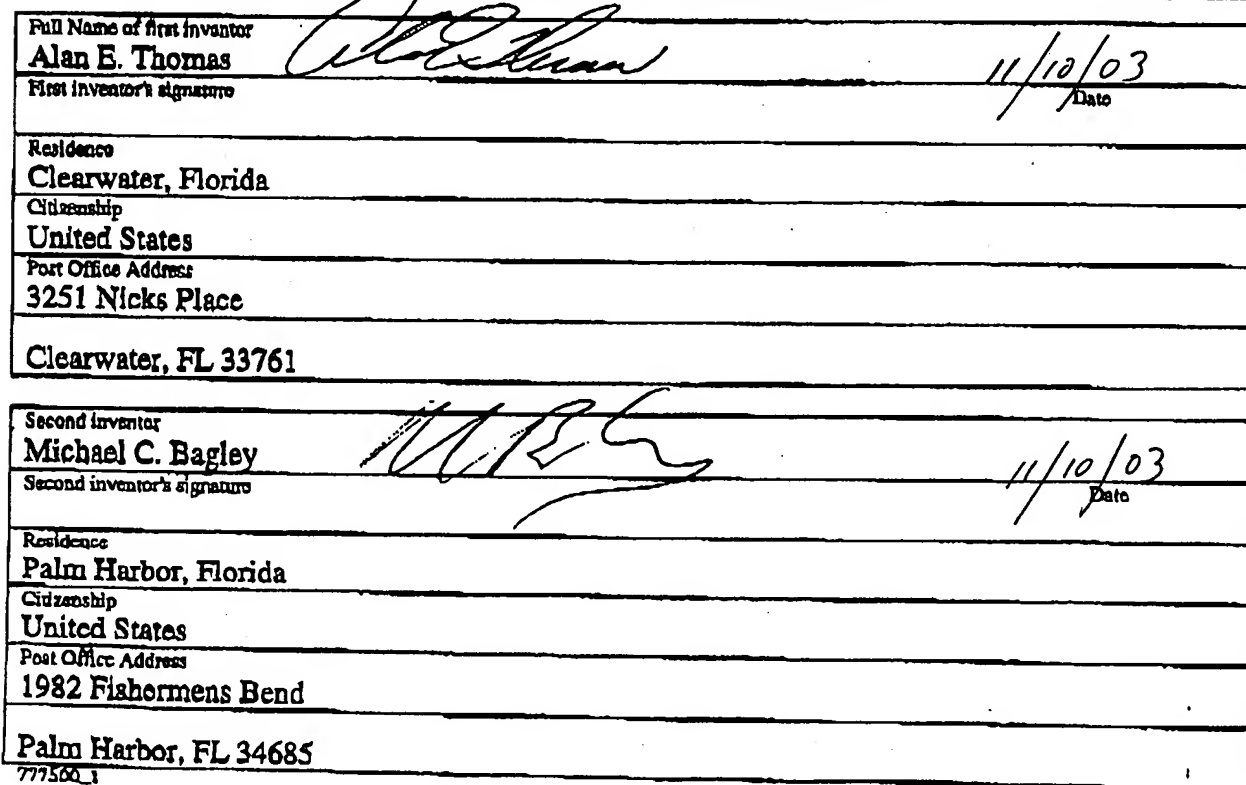 Full Name of first inventor
Alan E. Thomas
11/10/03
First inventor's signature
Date
Residence
Clearwater, Florida
Citizenship
United States
Post Office Address
3251 Nicks Place
Clearwater, FL 33761
Second inventor
Michael C. Bagley
11/10/03
Second inventor's signature
Date
Residence
Palm Harbor, Florida
Citizenship
United States
Post Office Address
1982 Fishermens Bend
Palm Harbor, FL 34685
777500_1